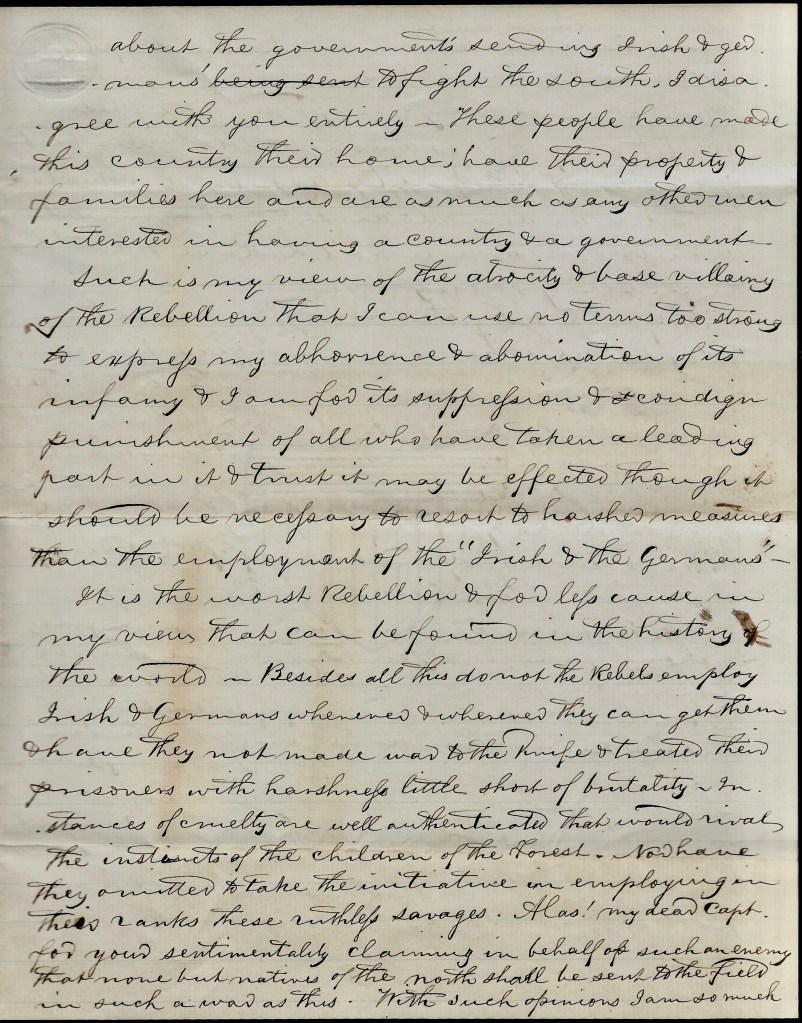 about the government's sending Irish & ger.
-mans' being sent to fight the south, I disa.
-gree with you entirely – These people have made
this country their home; have their property &
families here and are as much as any other men
interested in having a country & a government –
Such is my view of the atrocity & base villainy
of the Rebellion that I can use no terms too strong
to express my abhorrence & abomination of its
infamy & I am for its suppression & condign
punishment of all who have taken a leading
part in it & trust it may be effected though it
should be necessary to resort to harsher measures
than the employment of the "Irish & the Germans" –
It is the worst Rebellion & for less cause in
my view, that can be found in the history of
the world – Besides all this do not the Rebels employ
Irish & Germans whenever & wherever they can get them
& have they not made war to the Knife & treated their
prisoners with harshness little short of brutality – In.
-stances of cruelty are well authenticated that would rival
the instincts of the children of the Forest. Nor have
they omitted to take the initiative in employing in
their ranks these ruthless savages. Alas! my dear Capt.
for your sentimentality claiming in behalf of such an enemy
that none but natives of the north shall be sent to the field
in such a war as this. With such opinions I am so much